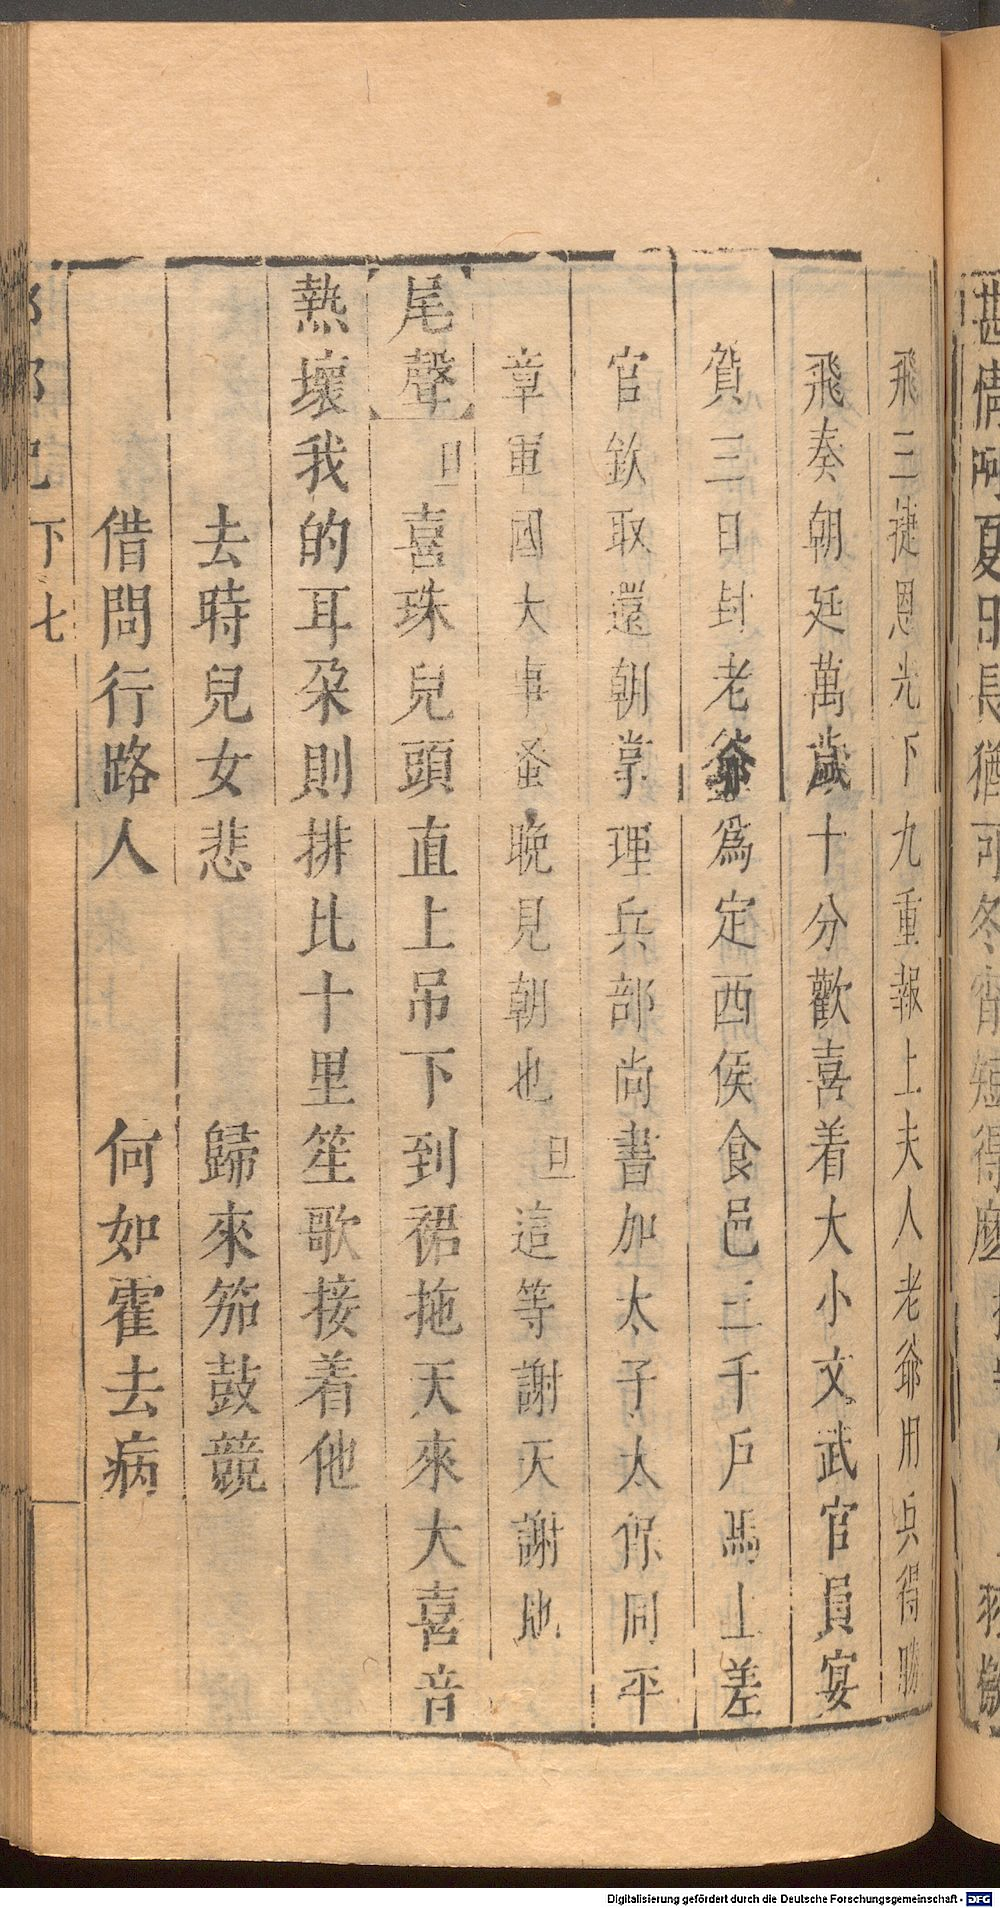 飛三捷恩光下九重報上夫人老爺用兵得勝
飛奏朝廷萬歲十分歡喜着大小文武官員宴
賀三日封老爺爲定西侯食邑三千戶馬上差
官欽取還朝掌理兵部尚書加太子太保同平
章軍國大事蚤晚見朝也旦這等謝天謝地
尾聲旦喜珠兒頭直上吊下到裙拖天來大喜音
熱壞我的耳朶則排比十里笙歌接着他
去時兒女悲 歸來笳鼓競
借問行路人 何如霍去病
下七
Digitalisierung gefördert durch die Deutsche Forschungsgemeinschaft - DFG